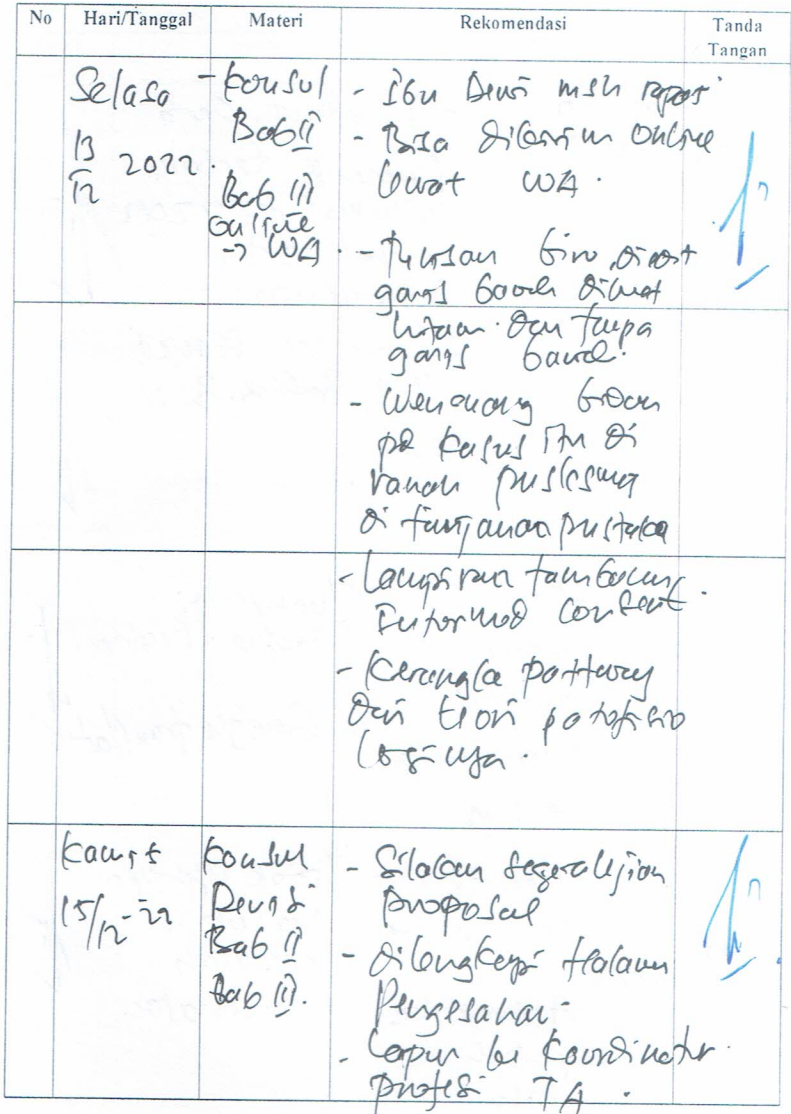 No Hari/Tanggal Materi Rekomendasi Tanda Tangan
Selasa
13/12 2022.
- Konsul
Bab II
Bab III
online
-> WA.
- Ibu Dewi msh rapat
- Bisa dikirim online
lewat WA.
- Tulisan biru, 
garis bawah dibuat
hitam dan tanpa
garis bawah.
- Wewenang bidan
pd kasus itu di
ranah puskesmas
di tinjauan pustaka
- Lampiran tambahan
Informed consent.
- Kerangka pathway
dari teori patofisio
loginya.
Kamis
15/12-22
Konsul
Revisi
Bab II
Bab III.
- Silakan segera Ujian
proposal
- dilengkapi Halaman
Pengesahan
- Lapor ke Koordinator
profesi TA.